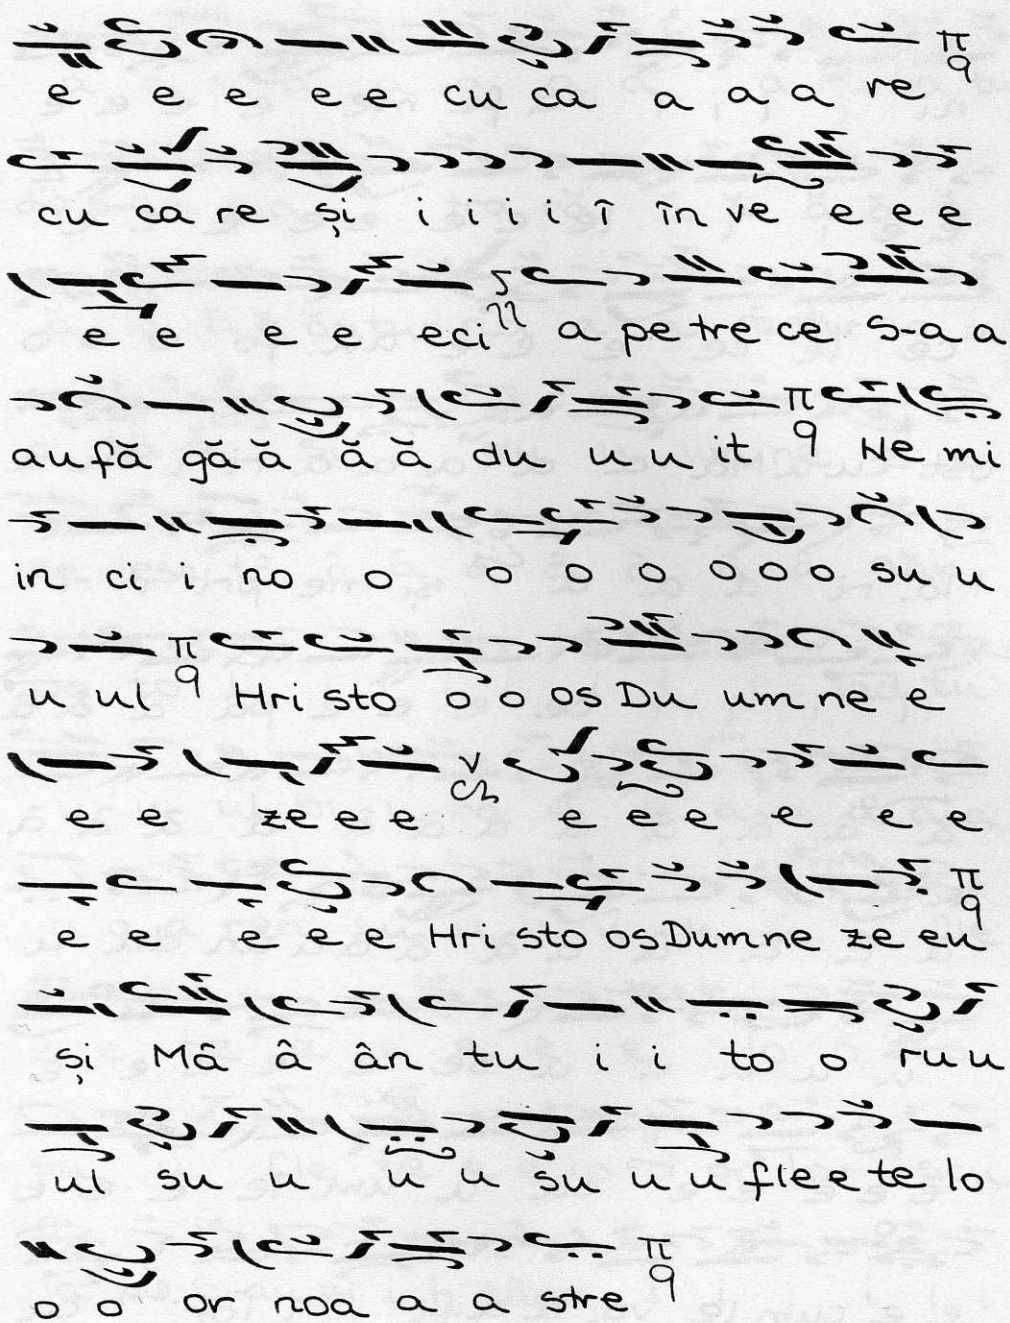 e e e e e cu ca a a a re π q
cu ca re și i i i i î în ve e e e
e e e e eci a pe tre ce s-a a
a u fă gă ă ă ă du u u it π q Ne mi
in ci i no o o o o o o o su u
u ul π q Hri sto o o os Du um ne e
e e ze e e e e e e e e
e e e e e Hri sto os Dum ne ze eu π q
și Mâ â ân tu i i to o ru u
ul su u u u su u u fle e te lo
o o or noa a a stre π q